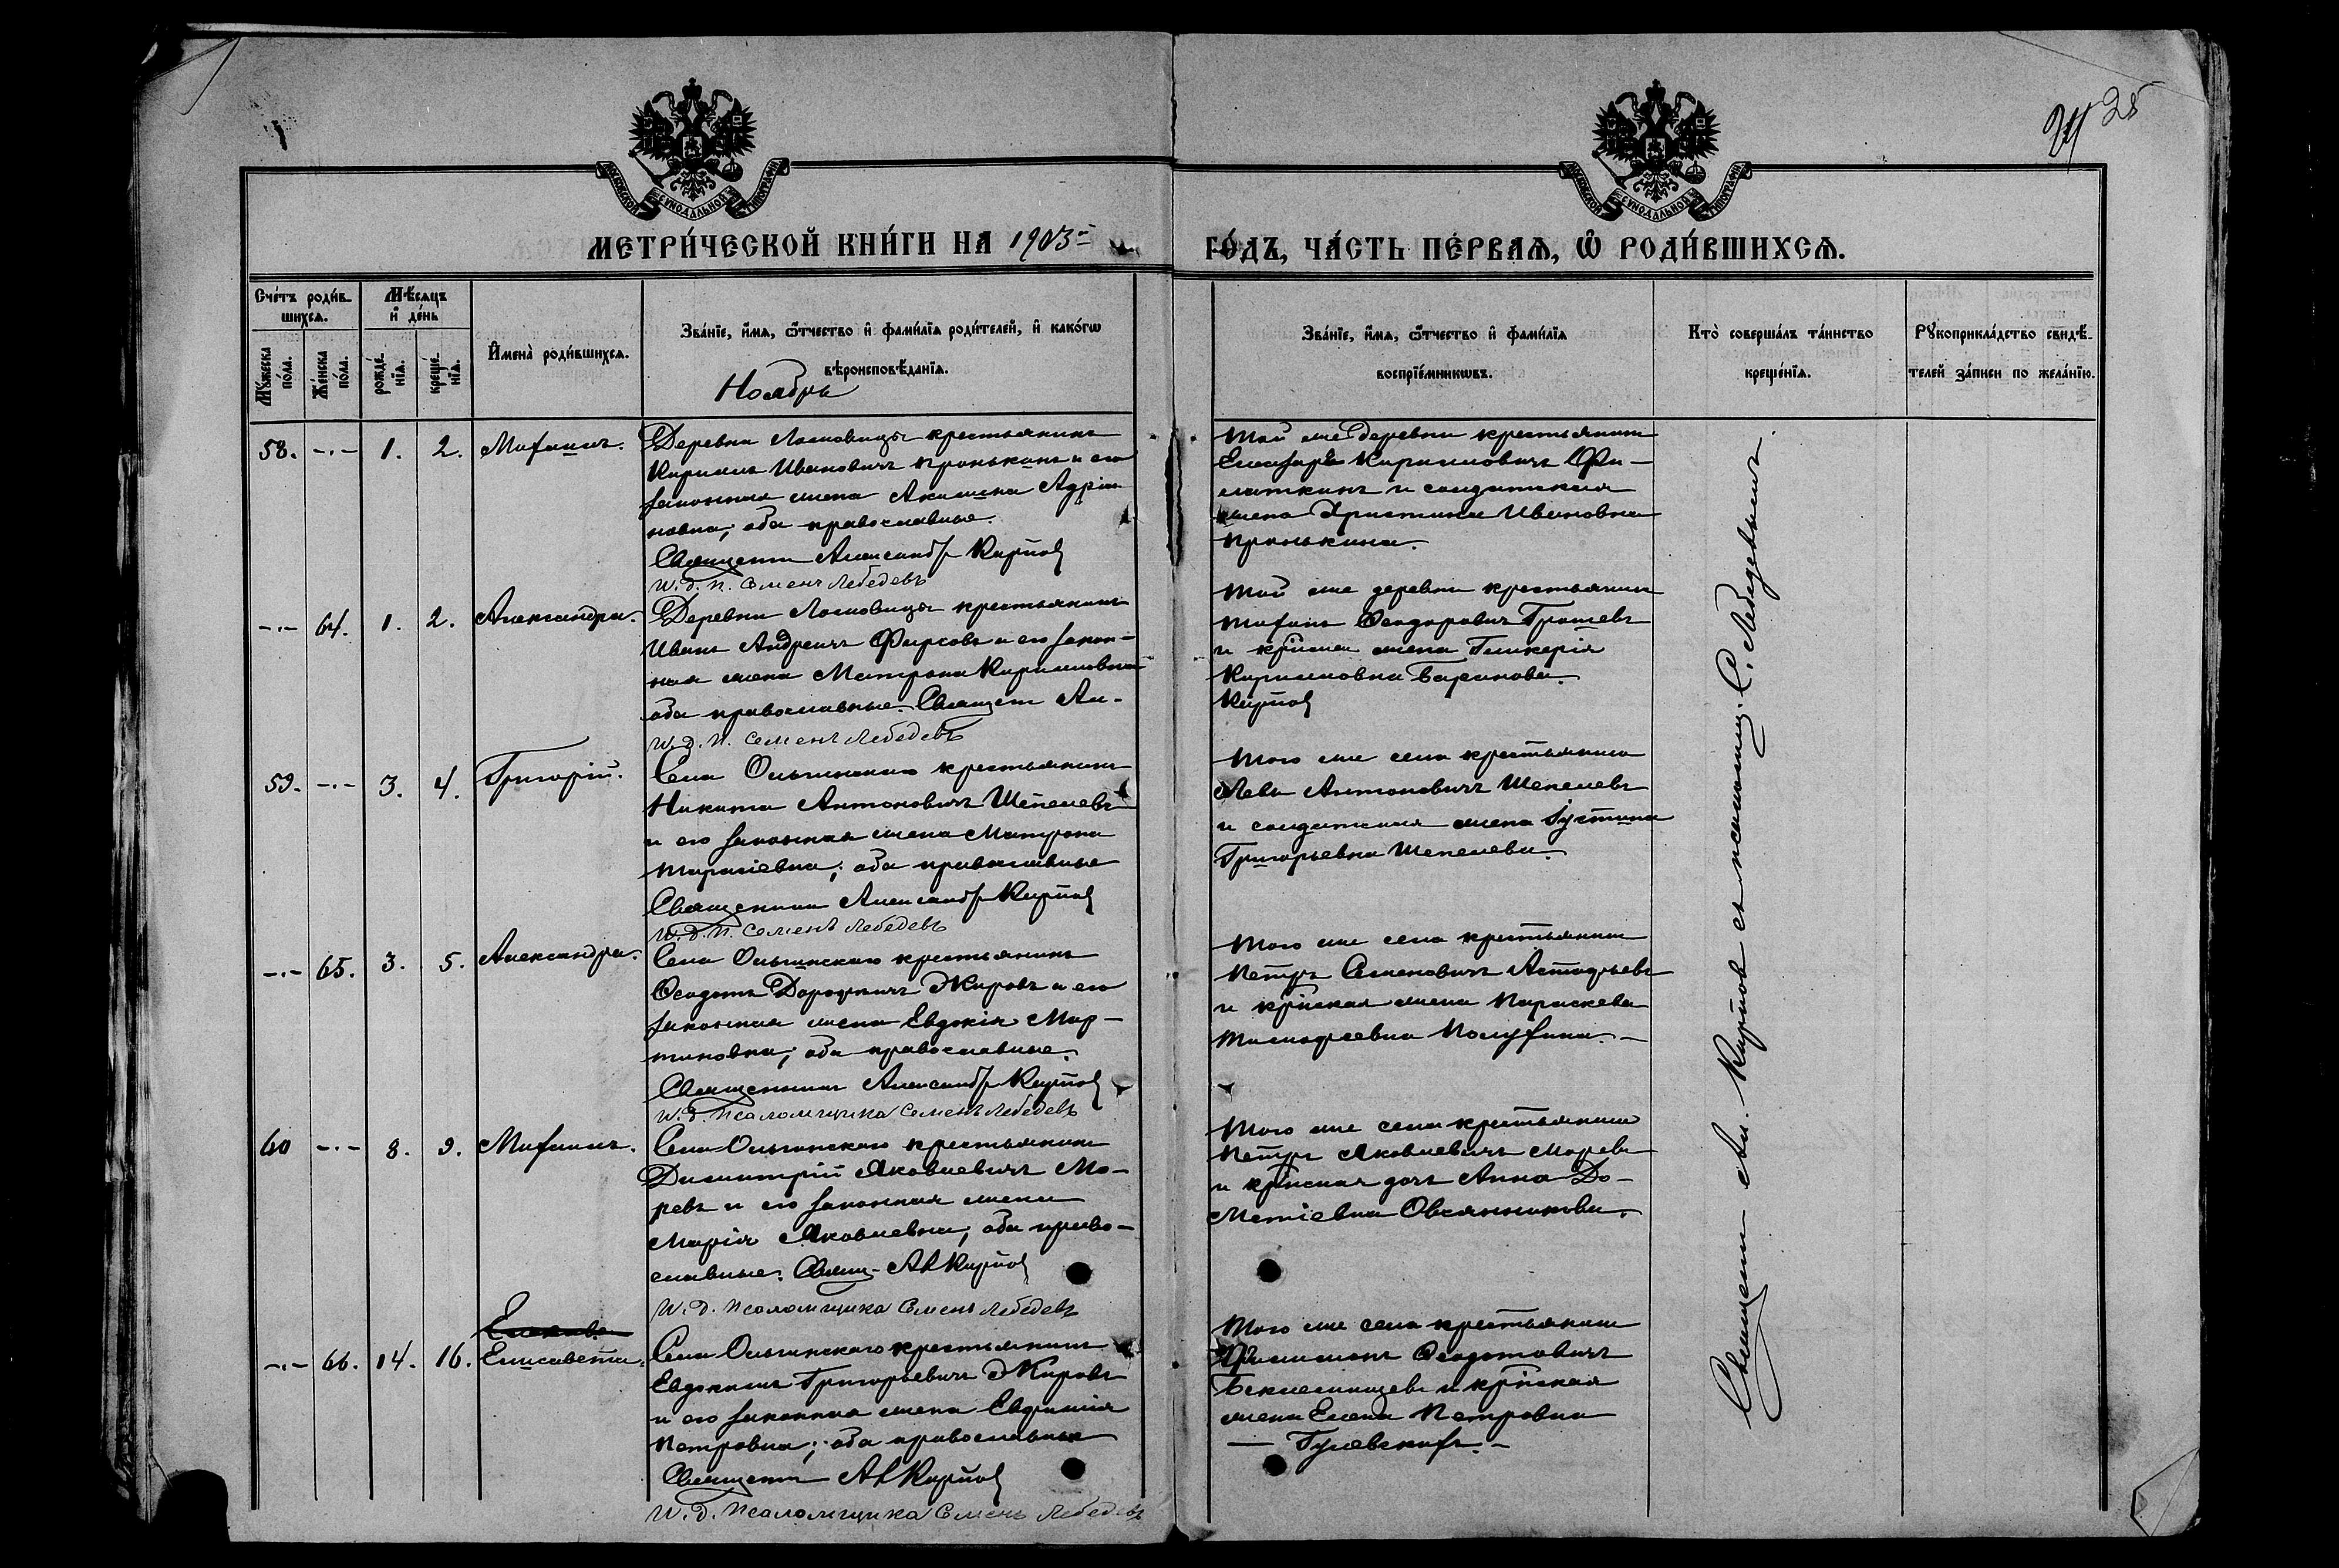 24 25
МОСКОВСКОЙ СУНОДАЛЬНОЙ ТИПОГРАФІИ
МОСКОВСКОЙ СУНОДАЛЬНОЙ ТИПОГРАФІИ
МЕТРИ́ЧЕСКОЙ КНИ́ГИ НА 1903 ГО́ДЪ, ЧА́СТЬ ПЕ́РВАѦ, Ѽ РОДИ́ВШИХСѦ.
Сче́тъ роди́в-
шихсѧ.
Мѣ́сѧцъ
и҆ де́нь
Мꙋ́жеска по́ла.
Же́нска по́ла.
рожде́нїѧ.
креще́нїѧ.
И҆мена̀ роди́вшихсѧ.
Зва́нїе, и҆́мѧ, ѻ҆́тчество и҆ фами́лїѧ роди́телей, и҆ како́гѡ
вѣроисповѣ́данїѧ.
Ноябрь
Зва́нїе, и҆́мѧ, ѻ҆́тчество и҆ фами́лїѧ
воспрїе́мникѡвъ.
Кто̀ соверша́лъ та́инство
креще́нїѧ.
Рꙋкоприкла́дство свидѣ́-
телей за́писи по жела́нїю.
58. -·- 1. 2. Михаилъ.
Деревни Ломовицы крестьянинъ
Кириллъ Ивановичъ Пронькинъ и его
законная жена Акилина Адріа
новна; оба православные.
Священ Александръ Карпов
И. д. п. Семенъ Лебедевъ
Той же деревни крестьянин
Елеазаръ Кирилловичъ Фи-
латкинъ и солдатская
жена Христина Ивановна
Пронькина.
-·- 64. 1. 2. Александра.
Деревни Ломовицы крестьянинъ
Иванъ Андреичъ Фирсовъ и его закон-
ная жена Матрона Кирилловна
оба православные. Священ Ал.
И. д. п. Семенъ Лебедевъ
Той же деревни крестьянин
Ѳеодоровичъ
и жена Гликерія
Кирилловна Баринова.
Карпов
59. -·- 3. 4. Григорій.
Села Ольгинскаго крестьянинъ
Никита Антоновичъ Шепелевъ
и его законная жена Матрона
Тарасіевна; оба православные
Священник Александръ Карпов
И. д. п. Семенъ Лебедевъ
Того же села крестьянин
Левъ Антоновичъ Шепелевъ
и солдатская жена Іустина
Григорьевна Шепелева.
-·- 65. 3. 5. Александра.
Села Ольгинскаго крестьянинъ
Ѳеодотъ Жировъ и его
законная жена Евдокія Мар-
тиновна; оба православные.
Священник Александръ Карпов
И. д. псаломщика Семенъ Лебедевъ
Того же села крестьянин
Петръ Семеновичъ Астафьевъ
и кр҃нская жена Параскева
Тимофеевна Полузина. -
60 -·- 8. 9. Михаилъ.
Села Ольгинскаго крестьянин
Димитрій Яковлевичъ Мо-
ревъ и его законная жена
Марія Яковлевна; оба право-
славные. Свящ. Ал Карпов
И. д. псаломщика Семенъ Лебедевъ
Того же села крестьянин
Петръ Яковлевичъ Моревъ
и кр҃нская дочь Анна До-
метіевна Овсянникова.
-·- 66. 14. 16. Елисавета.
Села Ольгинскаго крестьянинъ
Евдокимъ Григорьевичъ Жировъ
и его законная жена Евфимія
Петровна; оба православные
Священ Ал Карпов
И. д. псаломщика Семенъ Лебедевъ
Того же села крестьянин
Филимонъ Ѳеодотовичъ
Беклемищевъ и кр҃нская
жена Елена Петровна
Священ Ал. Карпов съ псаломщ. С. Лебедевымъ.